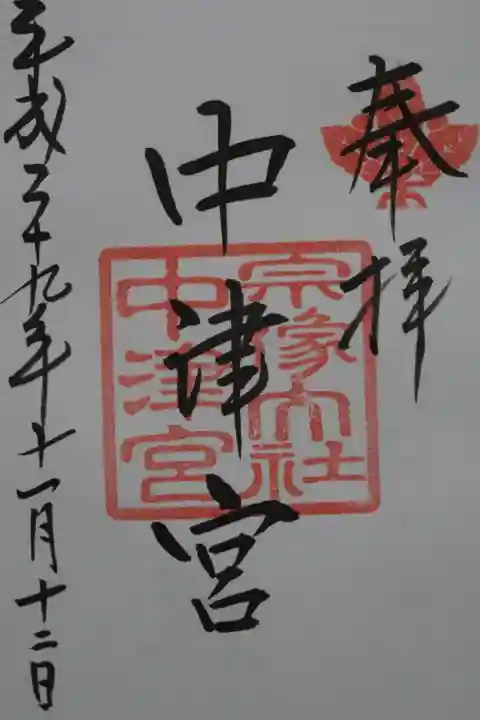 奉拝
中津宮
宗像大社
中津宮
平成二十九年十一月十二日